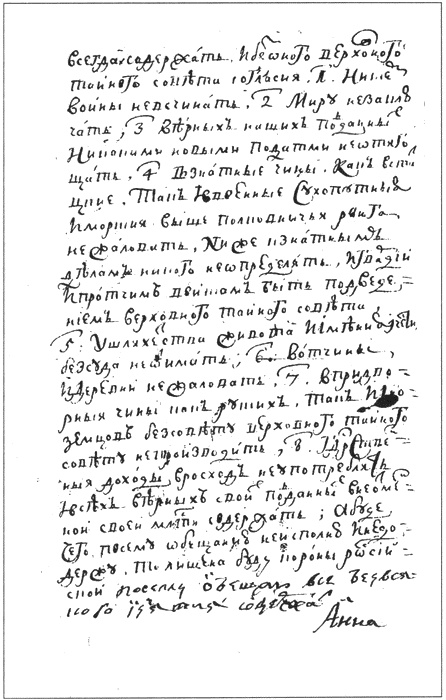 всегда содержать, и без оного верховного
тайного совета согласия, 1. Ни с кем
войны невсчинать, 2 Миру незаклю
чать, 3 верных наших подданных
Никакими новыми податми неотяго
щать, 4 В знатные чины, как встат
цкие, так и ввоенные Сухопутные
и морские выше полковничья ранга
нежаловать, Ниже к знатным
делам никого неопределять, и гвардии
и протчим войскам быть подведе=
нием верховного тайного совета
5. У шляхетства живота и имения и чести
без суда неотимать, 6. вотчины,
и деревни нежаловать, 7. впридво=
рныя чины как руских, так и ино=
земцов безсовету верховного тайного
совету непроизводить, 8. государстве=
ныя доходы врасход неупотреблять
и всех верных своих подданных внеотме=
ной своей милти содержать; Абуде
чего посему обещанию неисполню и недо=
держу, то лишена буду короны росий=
ской посему обещаю все без вся=
кого изъятия содержать
Анна